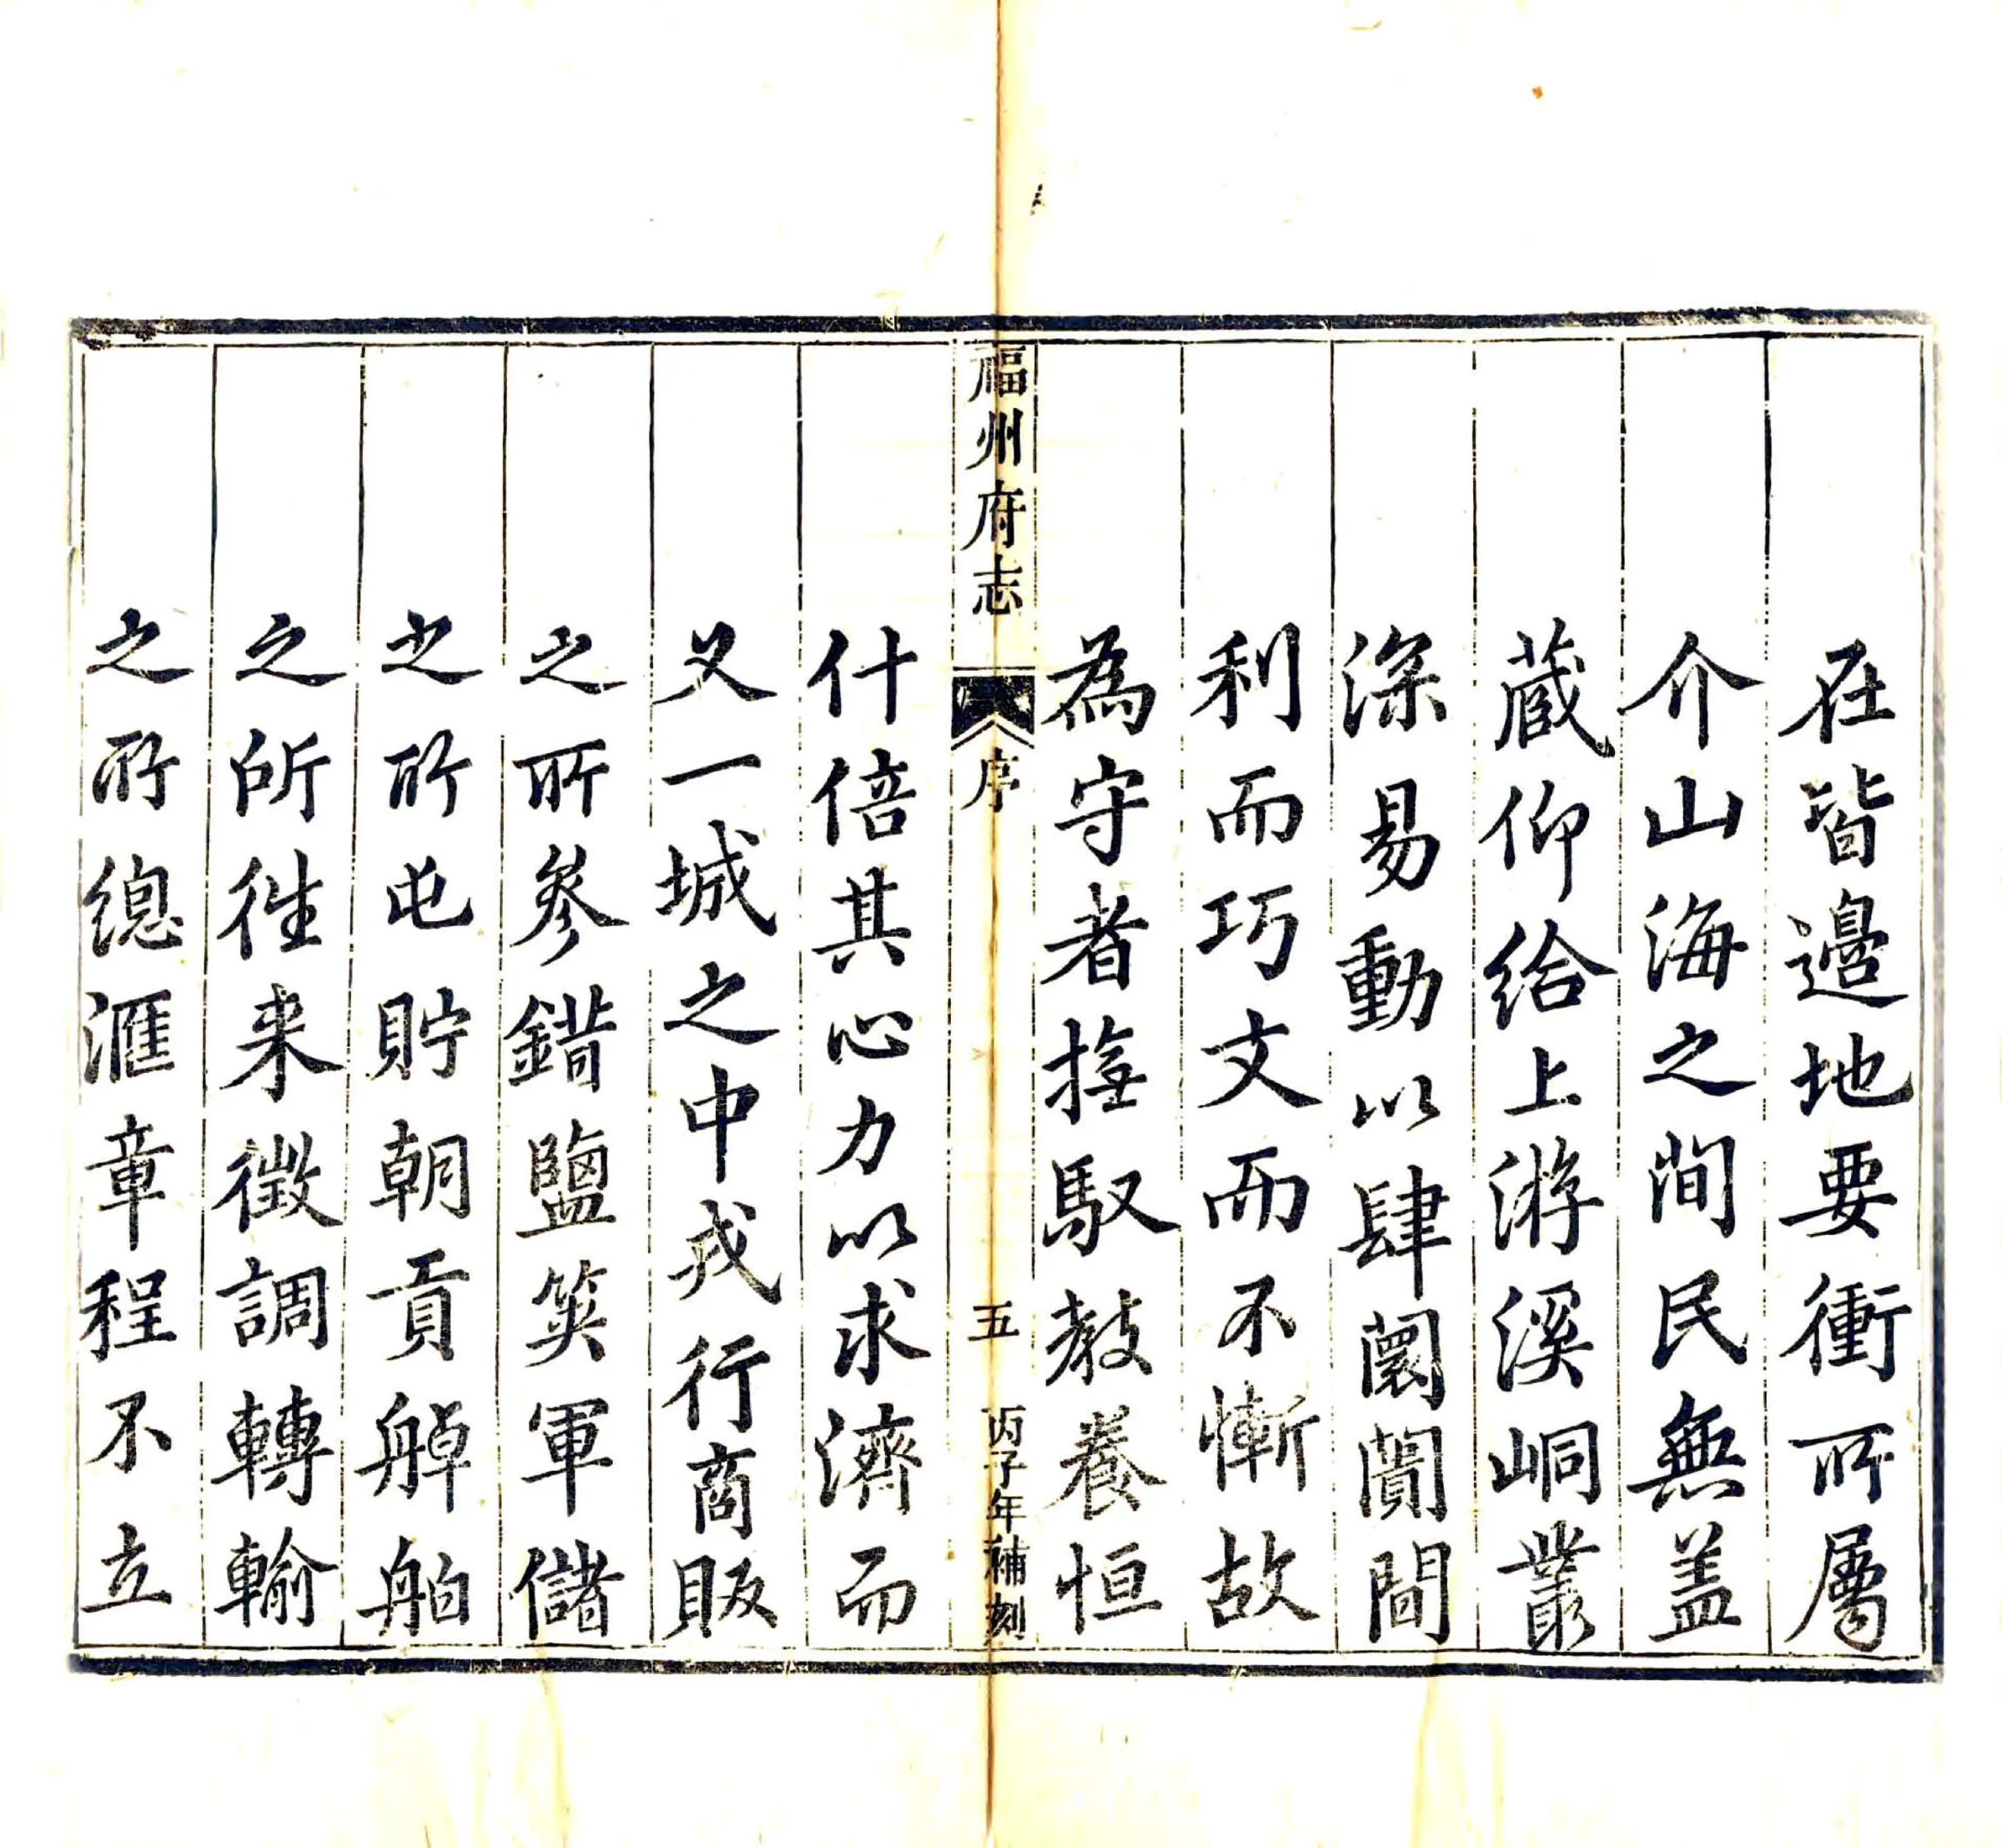 在皆邉地要衝所屬
介山海之間民無盖
蔵仰給上游溪峒叢
深易動以肆闤闠間
利而巧文而不慚故
為守者撫馭教養恒
福州府志
序
五
丙子年補刻
什倍其心力以求濟而
又一城之中戎行商販
之所參錯鹽筴軍儲
之所屯貯朝貢艀舶
之所徃来徴調轉輸
之所總滙章程不立